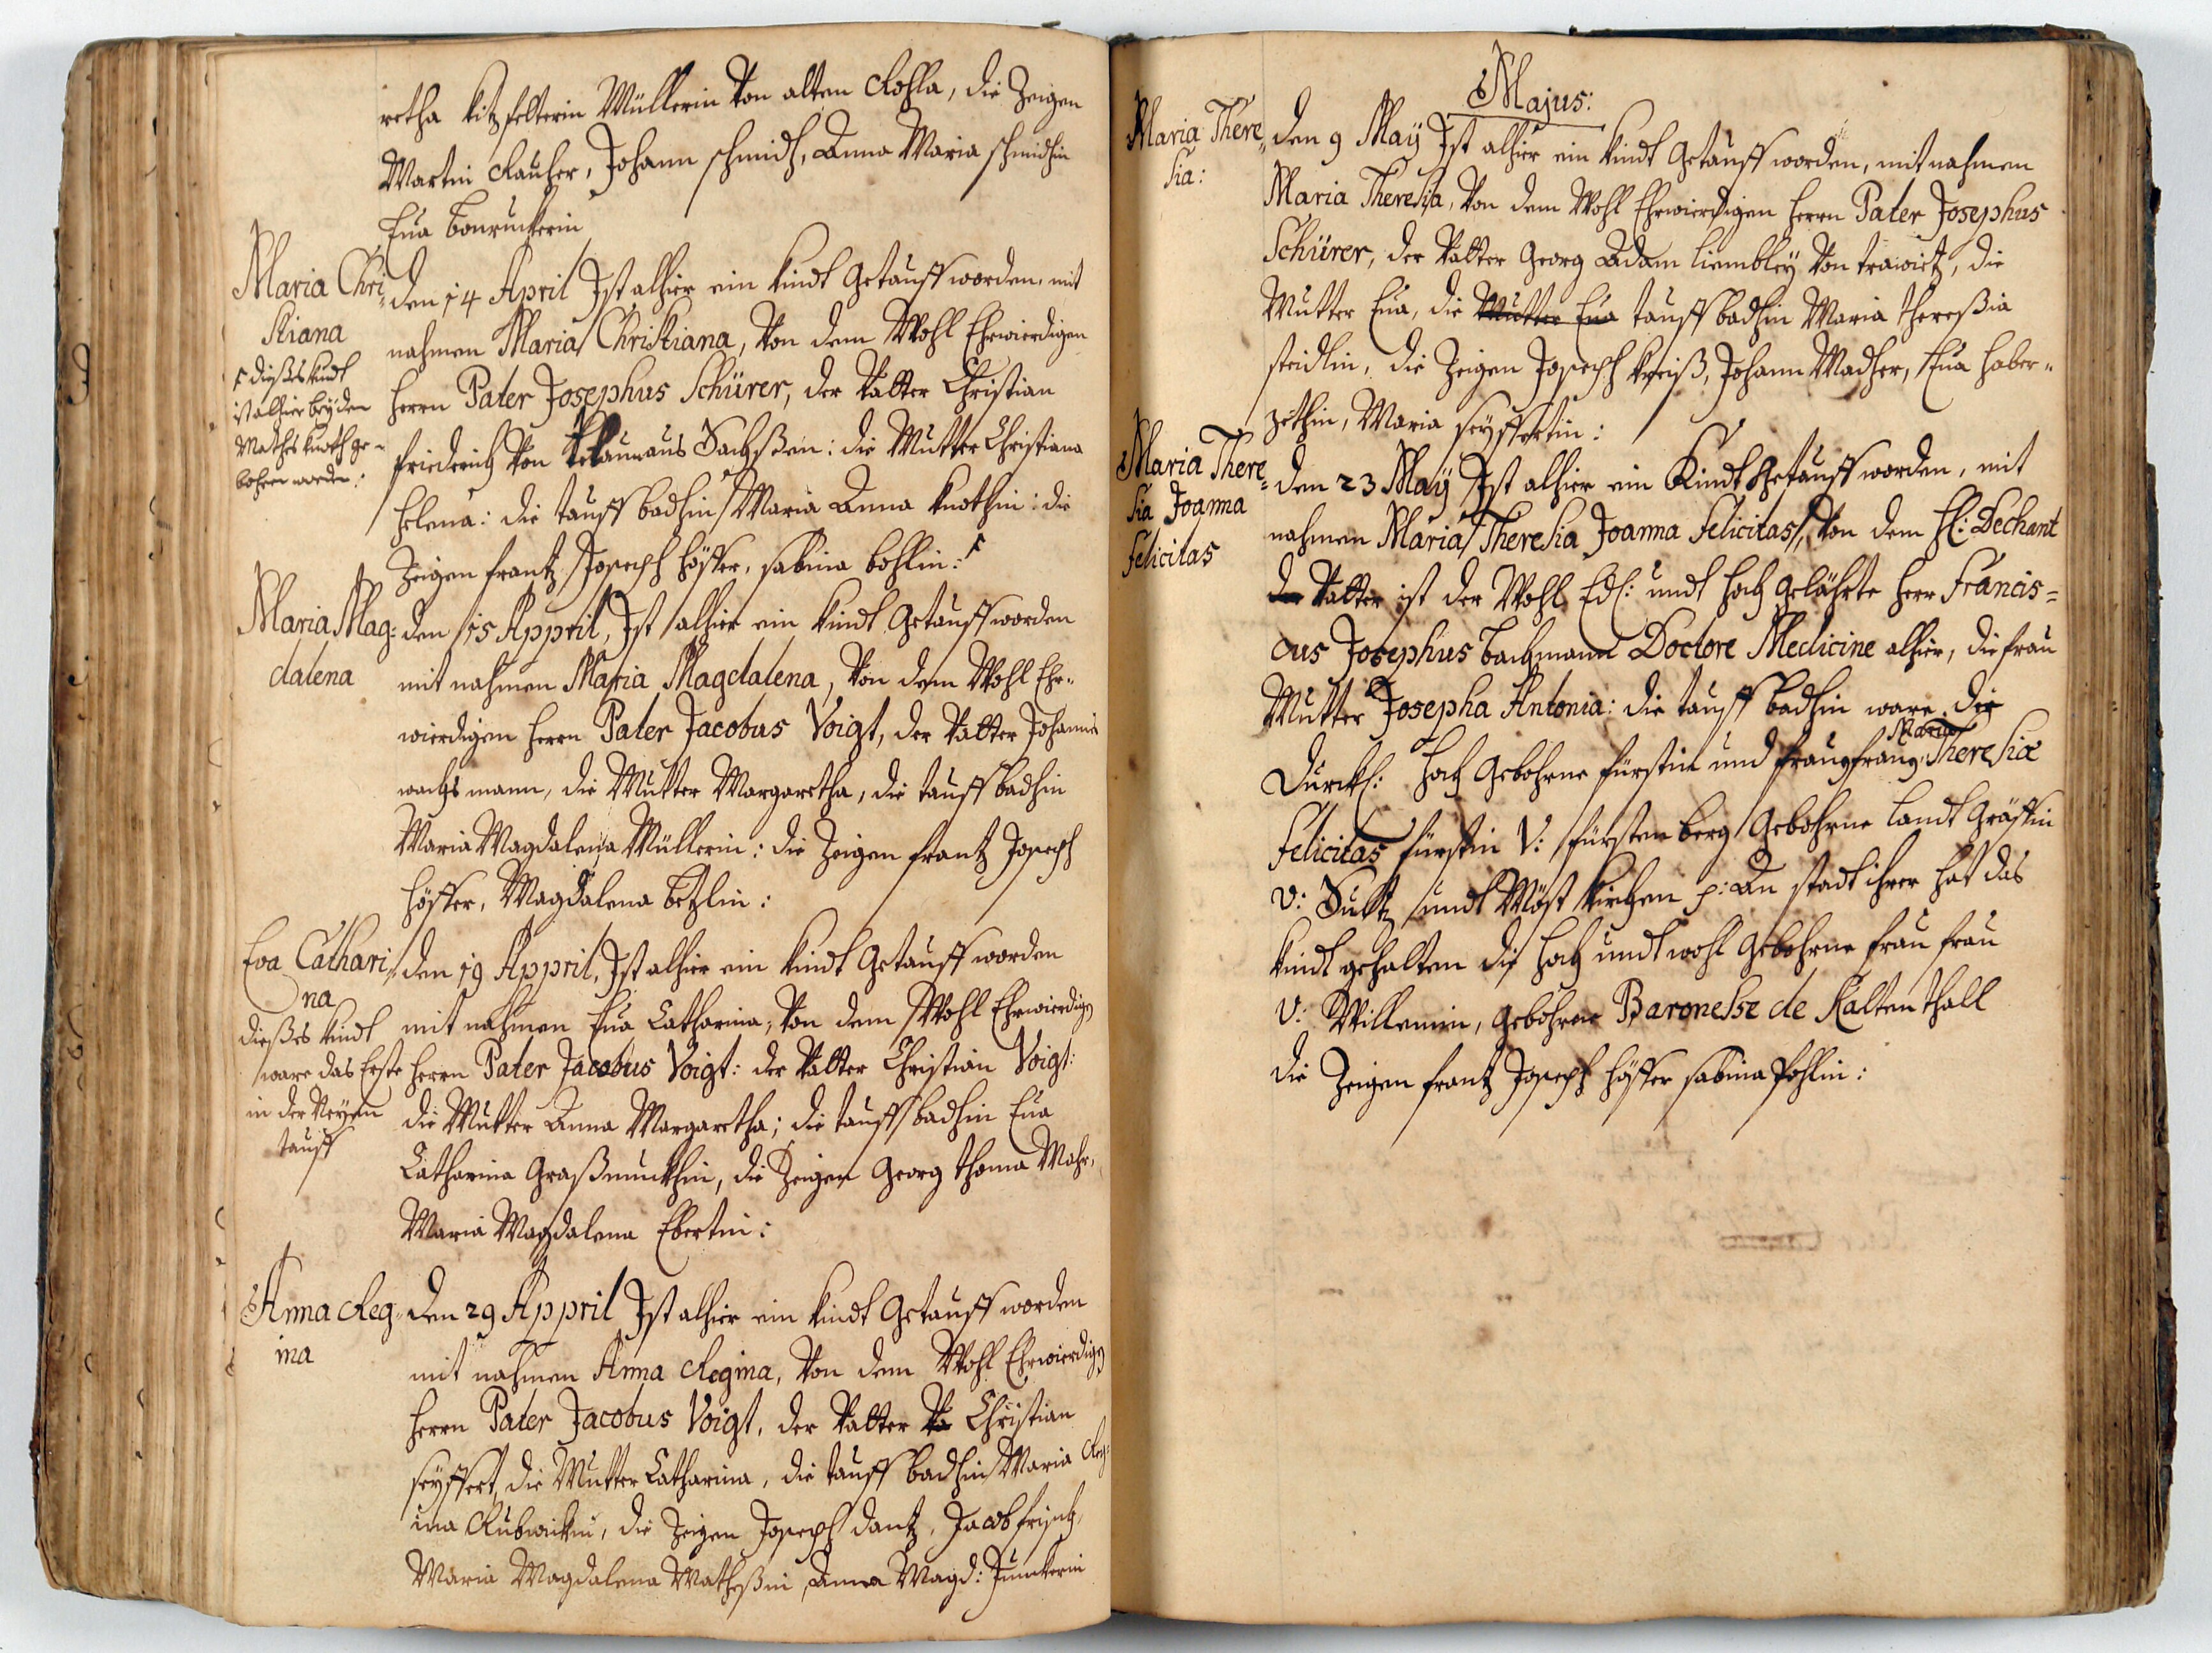 retha Kitzfelterin Müllerin Von alten Rohla, die Zeigen
Martin Rauher, Johann schmidt, Anna Maria schmidhin
Eua
Maria Chri„
stiana
dießes kindt
ist alhier bey den
Mathes Knoth ge-
bohren worden:
den 14 April Ist alhier ein kindt Getaufft worden, mit
nahmen Maria Christiana, Von dem Wohl Ehrwierdigen
herrn Pater Josephus Schürer, der Vatter Christian
friederich Von aus Sachßen: die Mutter Christiana
Helena: die tauff badhin Maria Anna Knothin: die
Zeigen frantz Joseph höffer, sabina bohlin:
Maria Mag:
dalena
den 15 Appril, Ist alhier ein kindt Getaufft worden
mit nahmen Maria Magdalena, Von dem Wohl Ehr„
wierdigen herrn Pater Jacobus Voigt, der Vatter Johannes
wachsmann, die Mutter Margaretha, die tauff badhin
Maria Magdalena Müllerin: die Zeigen frantz Joseph
höffer, Magdalena betzlin:
Eva Cathari„
na
dießes kindt
ware das Erste
in der Neyen
tauff
den 19 Appril, Ist alhier ein kindt Getaufft worden
mit nahmen Eua Catharina, Von dem Wohl Ehrwierdigen
herrn Pater Jacobus Voigt: der Vatter Christian Voigt:
die Mutter Anna Margaretha; die tauff badhin Eua
Catharina Graßmuckhin, die Zeigen Georg thoma Mahr,
Maria Magdalena Ebertin:
Anna Reg„
ina
den 29 Appril Ist alhier ein kindt Getaufft worden
mit nahmen Anna Regina, Von dem Wohl Ehrwierdigen
herrn Pater Jacobus Voigt, der Vatter Va Christian
seyffert, die Mutter Catharina, die tauff badhin Maria Reg„
ina, die Zeigen Joseph dantz, Jacob frisch,
Maria Magdalena Matheßin, Anna Magd: Junckerin
Majus:
Maria There„
sia:
den 9 May Ist alhier ein kindt Getaufft worden, mit nahmen
Maria Theresia, Von dem Wohl Ehrwierdigen herrn Pater Josephus
Schürer, der Vatter Georg Adam liembley Von trawitz, die
Mutter Eua, die Mutter Eua tauff badhin Maria thereßia
steidlin, die Zeigen Joseph Kreiß, Johann Madher, Eua haber„
zethin, Maria seyffertin:
Maria There„
sia Joanna
felicitas
den 23 May Ist alhier ein Kindt Getaufft worden, mit
nahmen Maria Theresia Joanna Felicitas, Von dem H: Dechant
der Vatter ist der Wohl Edl: undt hoch gelährte herr Francis=
cus Josephus bachmann Doctore Medicine alhier, die frau
Mutter Josepha Antonia: die tauff badhin ware die
Durchl: hoch Gebohrne fürstin und frau, frau, Maria Theresia
Felicitas fürstin V: fürstenberg Gebohrne landt Gräffin
V: Sultz undt Möst Kirchen p: An stadt ihrer hat das
kindt gehalten die hoch undt wohl Gebohrne frau frau
V: Willemin, gebohrne Baronesse de Kaltenthall
die Zeigen frantz Joseph höffer sabina Pohlin: